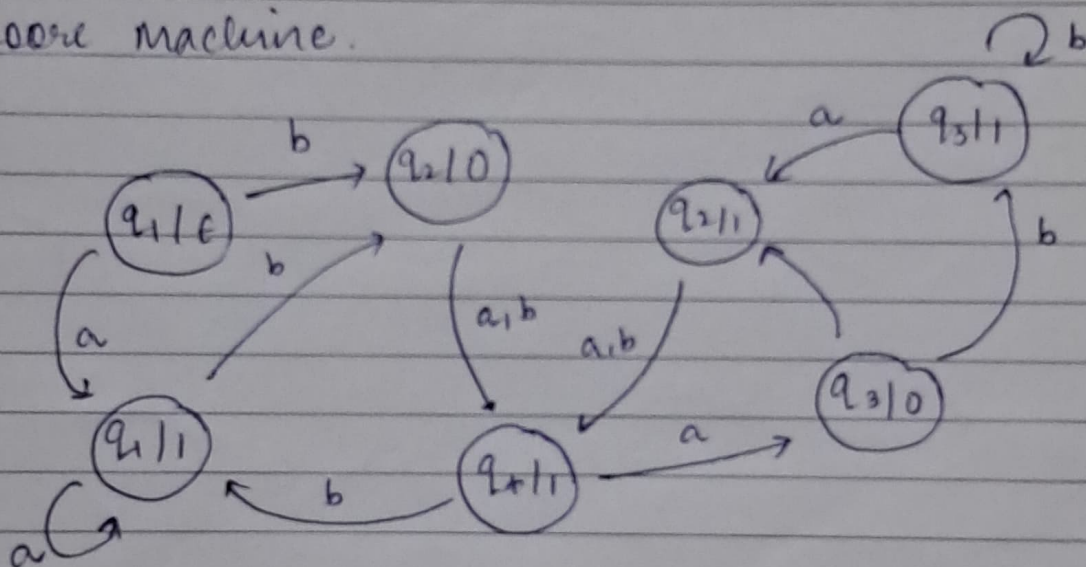 oore machine.
b
a
q3/1
b
q2/0
q1/ε
q2/1
b
b
a
a,b
a,b
q3/0
q1/1
a
q4/1
b
a